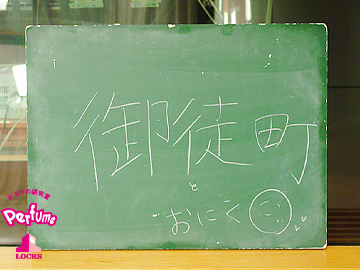 御徒町
と
おにく
Perfume
LOCKS